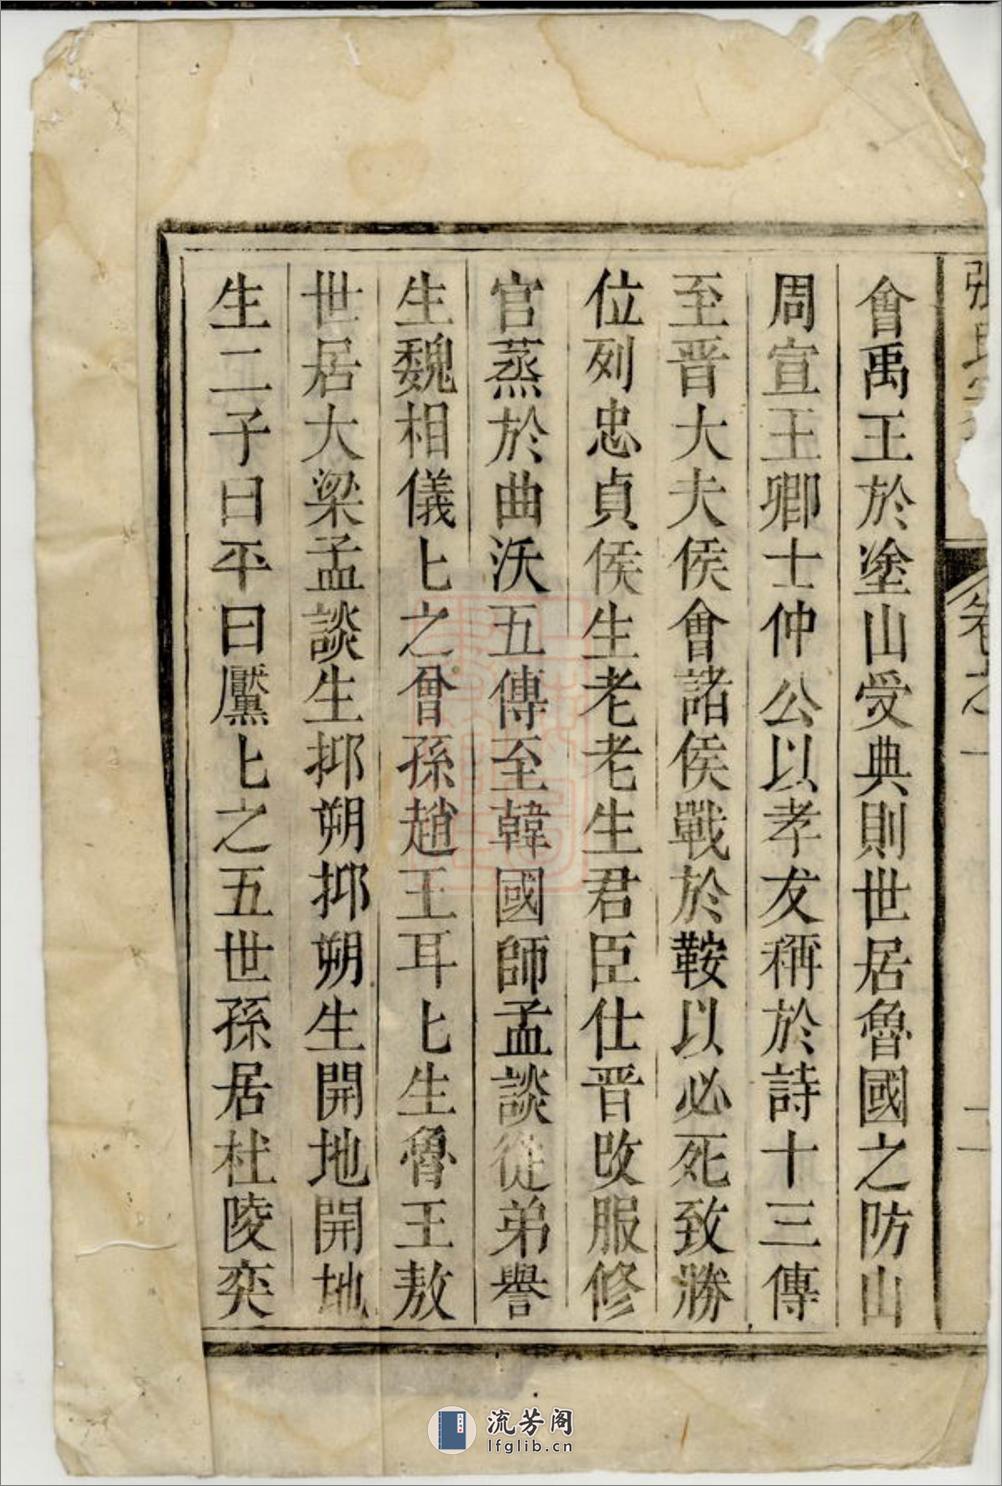 會禹王於塗山受典則世居魯國之防山
周宣王卿士仲公以孝友稱於詩十三傳
至晋大夫侯會諸侯戰於鞍以必死致勝
位列忠貞侯生老老生君臣仕晋改服修
官蒸於曲沃五傳至韓國師孟談從弟譽
生魏相儀匕之曾孫趙王耳匕生魯王敖
世居大梁孟談生抑朔抑朔生開地開地
生二子曰平曰黶匕之五世孫居杜陵奕
卷之一
二
流芳阁
lfglib.cn